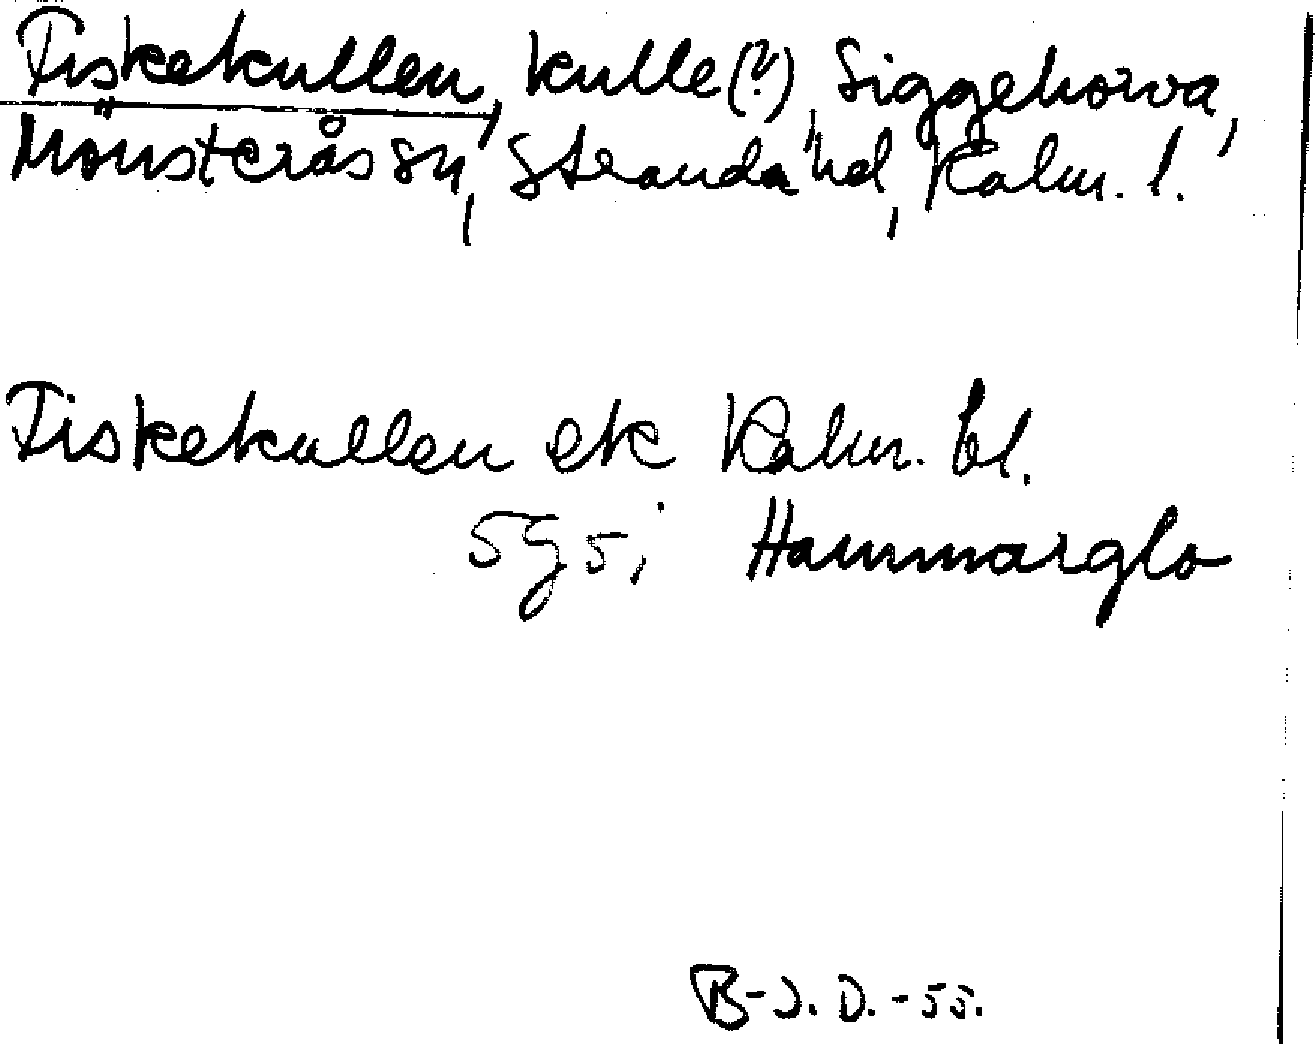 Fiskekullen, kulle(?), Siggehorva,
Mönsterås sn, Stranda hd, Kalm. l.
Fiskekullen ek Kalm. bl.
5g5; Hammarglo
B-J. D. -55.